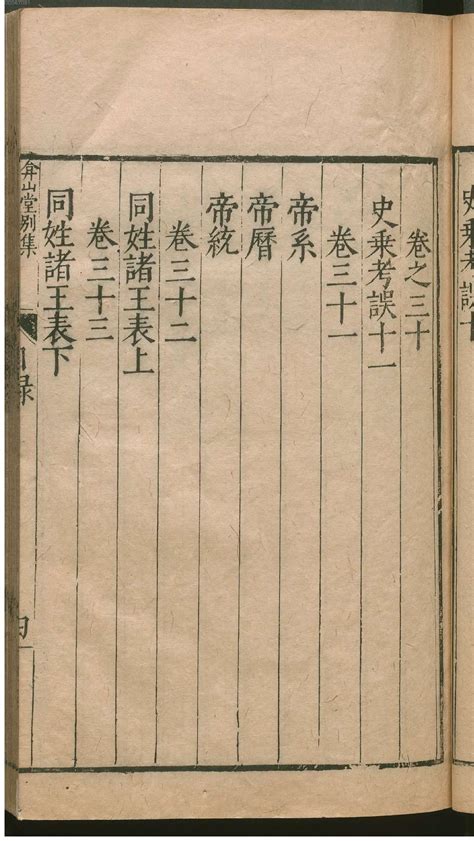 卷之三十
史乗考誤十一
卷三十一
帝系
帝曆
帝統
卷三十二
同姓諸王表上
卷三十三
同姓諸王表下
弇山堂别集
目録